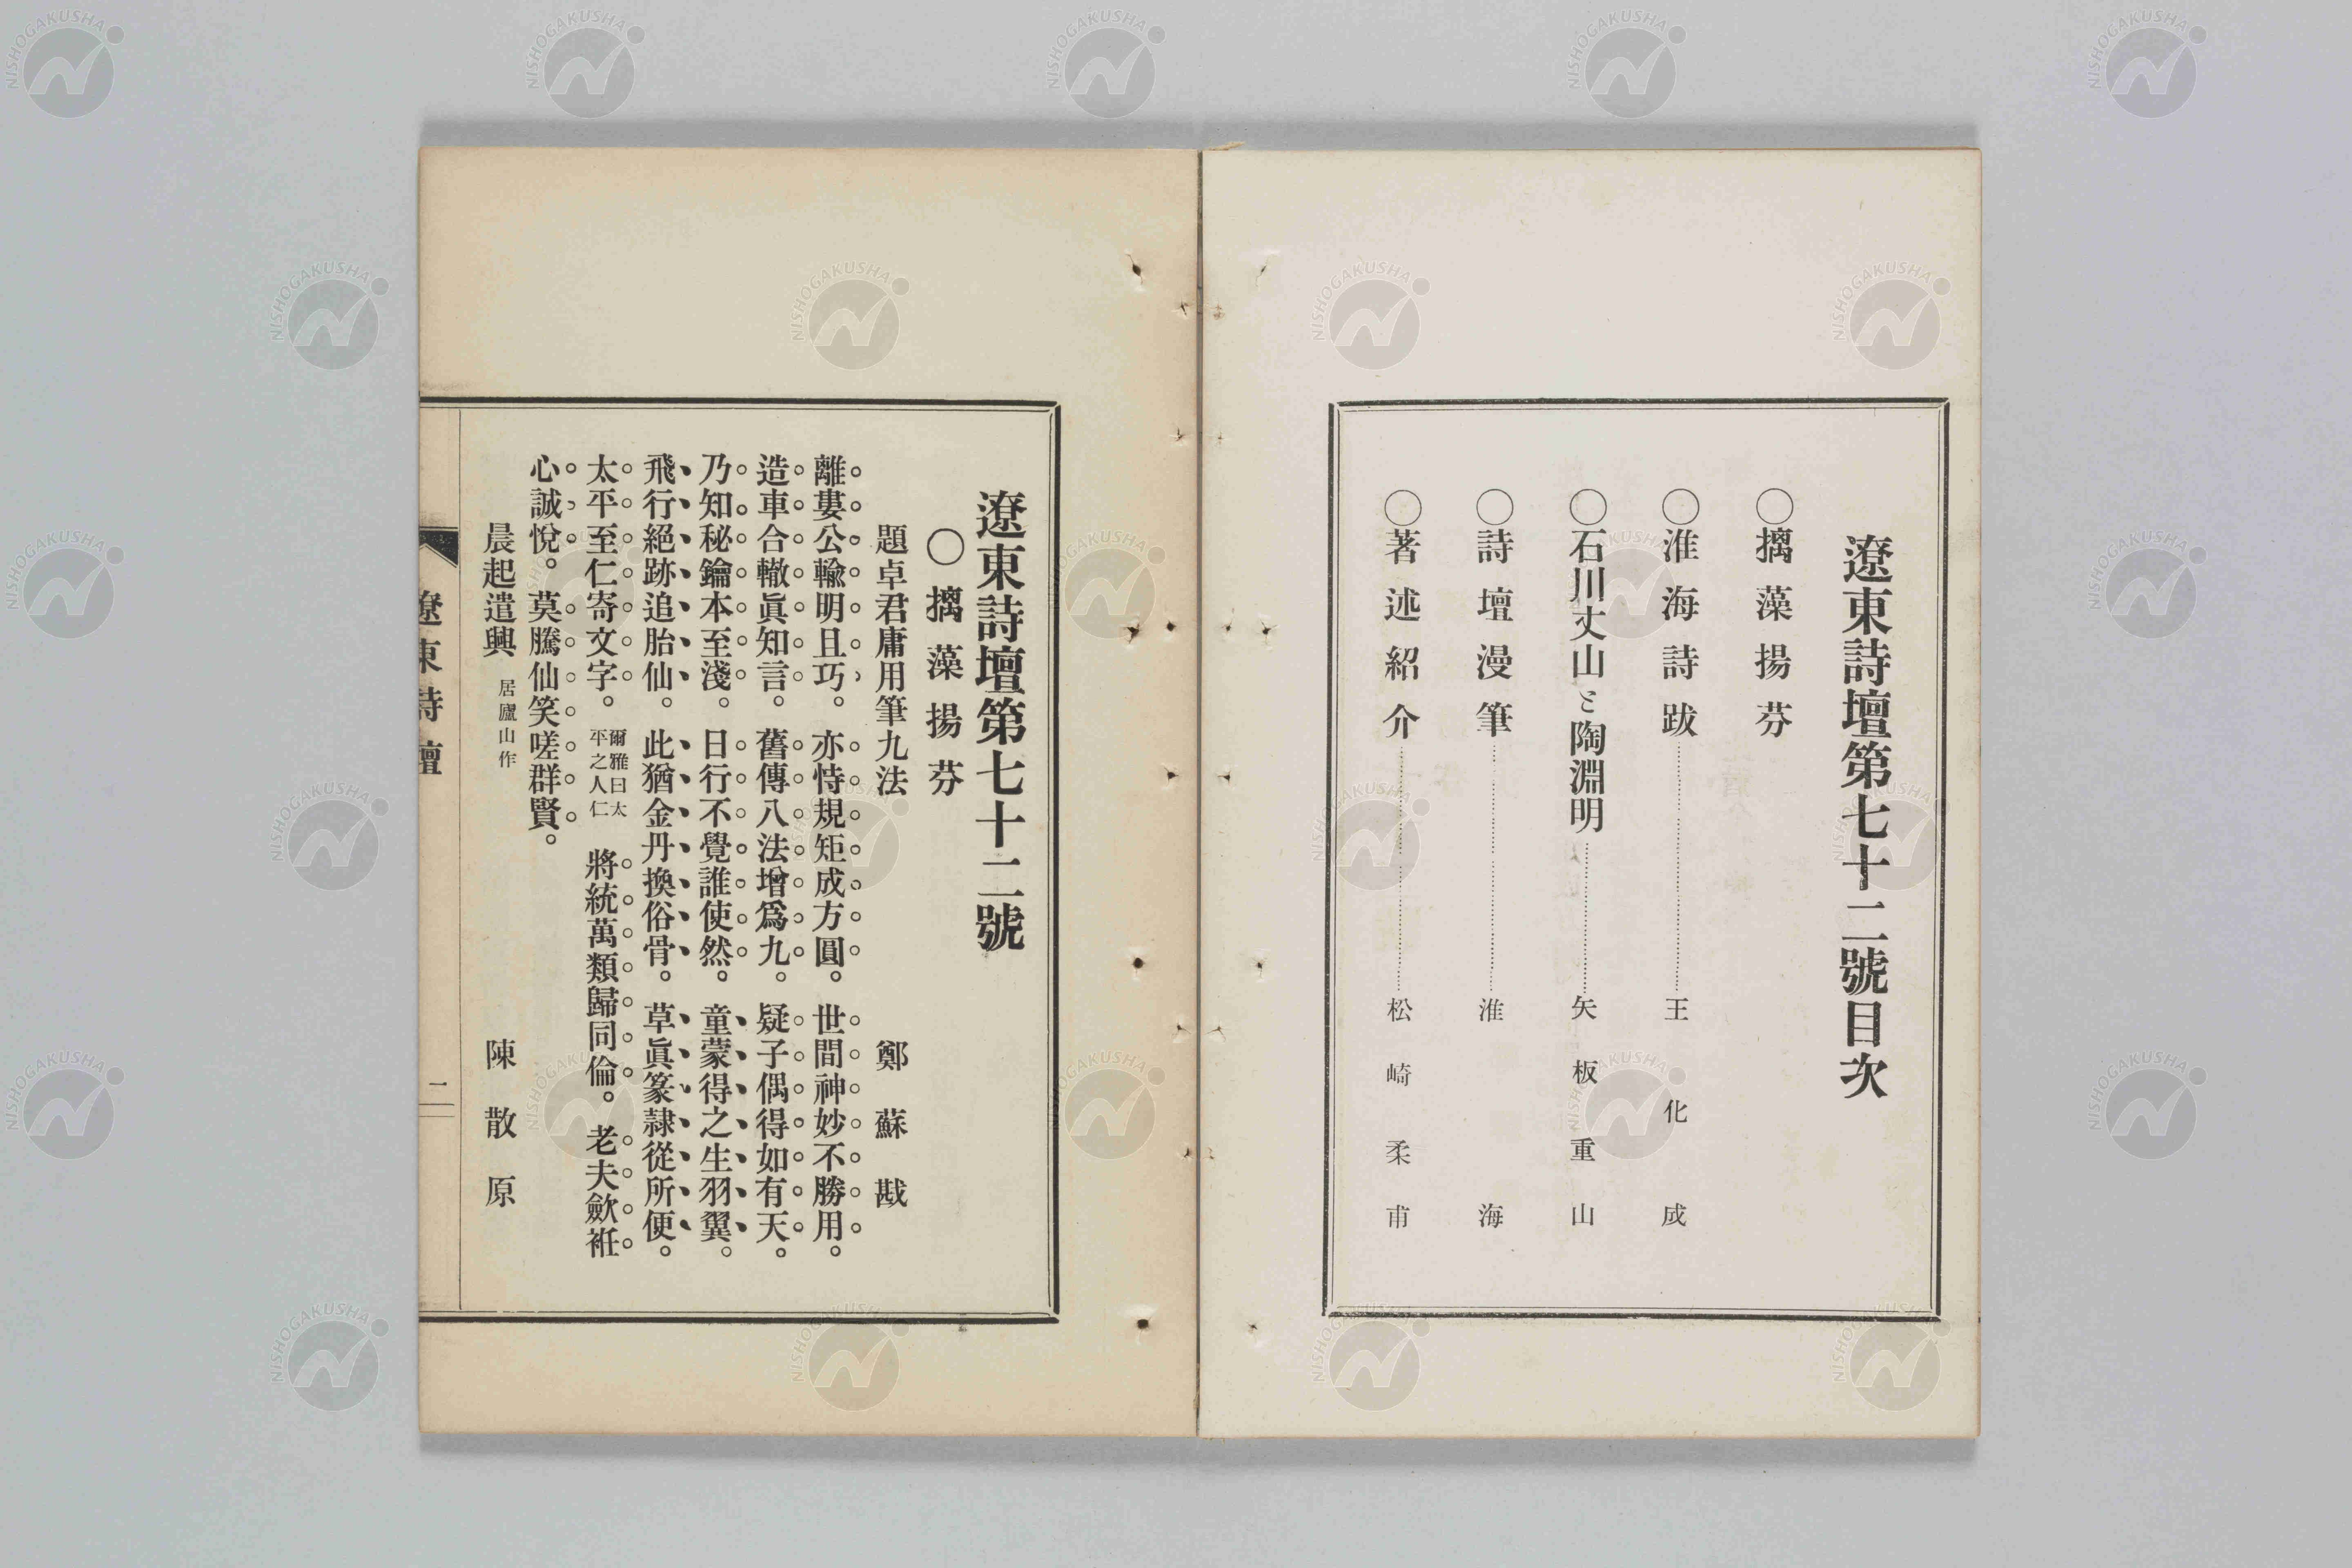 遼東詩壇第七十二號目次
○摛藻揚芬
○淮海詩跋………王化成
○石川丈山と陶淵明………矢板重山
○詩壇漫筆………淮海
○著述紹介………松崎柔甫
遼東詩壇第七十二號
○摛藻揚芬
題卓君庸用筆九法　鄭蘇戡
離婁公輸明且巧。亦恃規矩成方圓。世間神妙不勝用。
造車合轍眞知言。舊傳八法增爲九。疑子偶得如有天。
乃知秘鑰本至淺。日行不覺誰使然。童蒙得之生羽翼。
飛行絕跡追胎仙。此猶金丹換俗骨。草眞篆隷從所便。
太平至仁寄文字。爾雅曰太平之人仁　將統萬類歸同倫。老夫歛袵
心誠悅。莫騰仙笑嗟群賢。
晨起遣興　居廬山作　陳散原
遼東詩壇
二
NISHOGAKUSHA